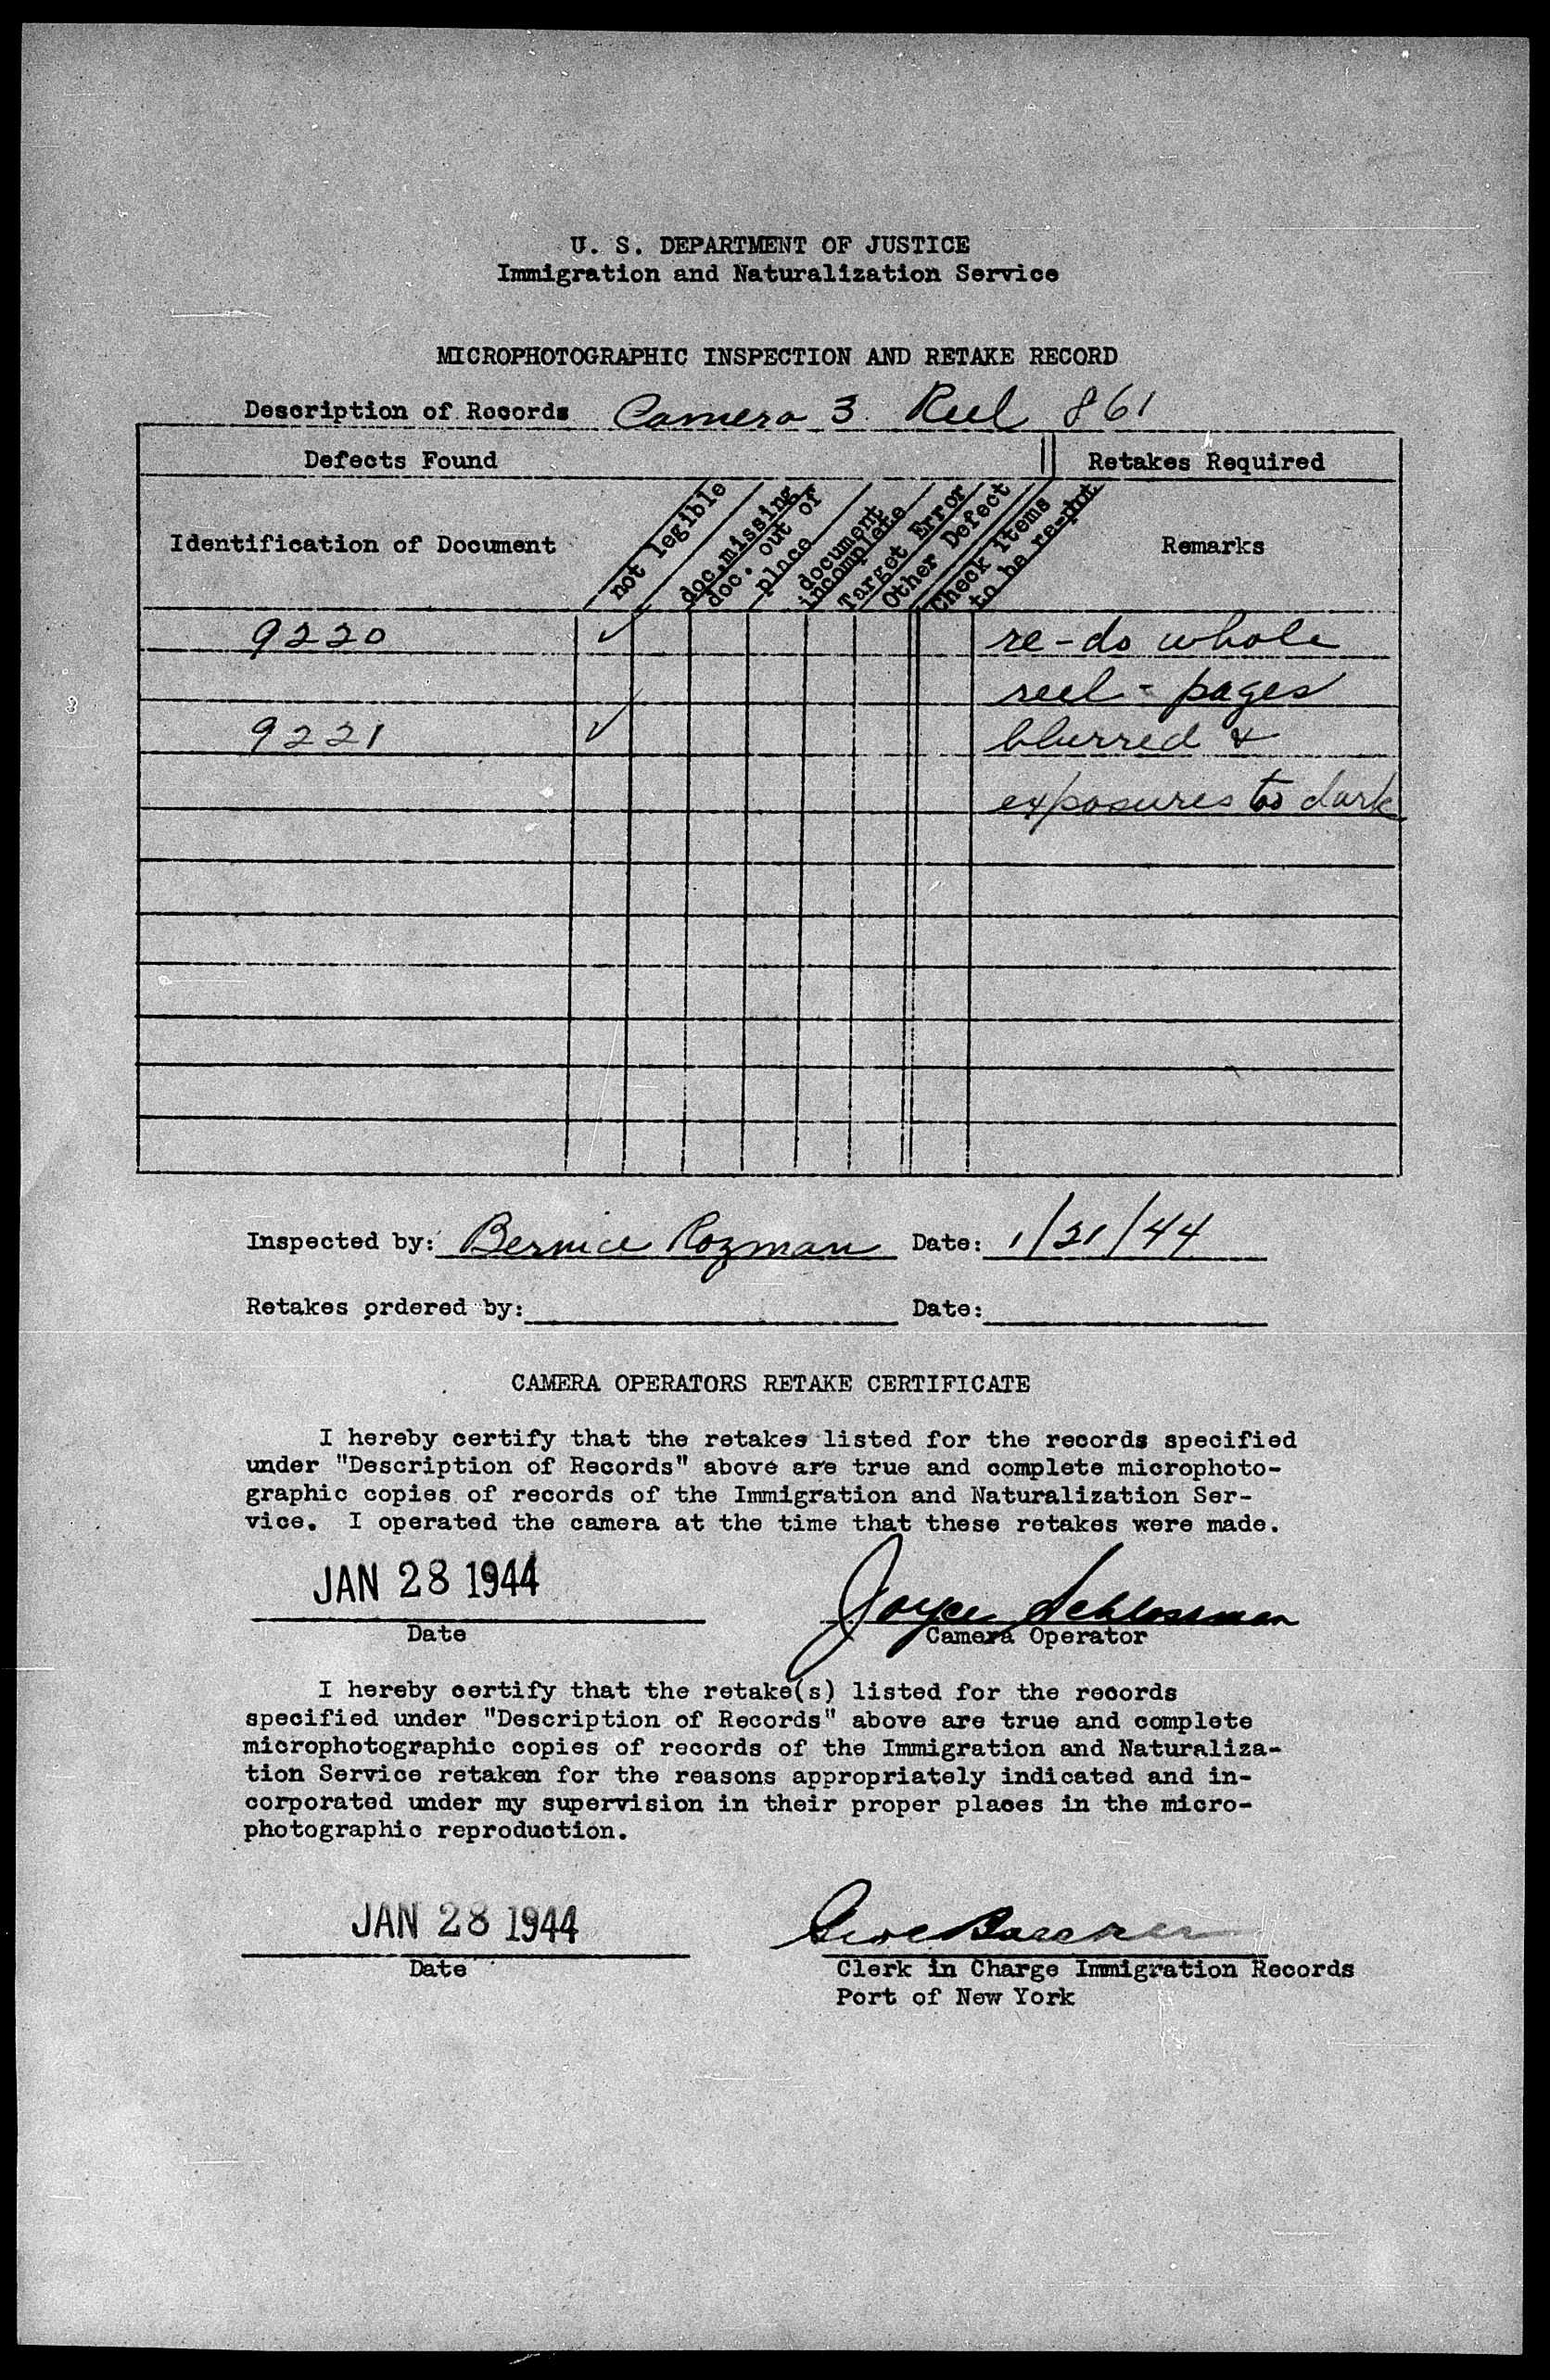 U. S. DEPARTMENT OF JUSTICE
Immigration and Naturalization Service
MICROPHOTOGRAPHIC INSPECTION AND RETAKE RECORD
Description of Records Camera 3 Reel 861
Defects Found
Retakes Required
Identification of Document
not legible
doc. missing
doc. out of
place
document
incomplete
Target Error
Other Defect
Check items
to be re-phot
Remarks
9220 ✓ re-do whole
reel - pages
9221 ✓ blurred &
exposures to dark
Inspected by: Bernice Rozman Date: 1/21/44
Retakes ordered by: Date:
CAMERA OPERATORS RETAKE CERTIFICATE
I hereby certify that the retakes listed for the records specified
under "Description of Records" above are true and complete microphoto-
graphic copies of records of the Immigration and Naturalization Ser-
vice. I operated the camera at the time that these retakes were made.
JAN 28 1944 Joyce Schlossman
Date Camera Operator
I hereby certify that the retake(s) listed for the records
specified under "Description of Records" above are true and complete
microphotographic copies of records of the Immigration and Naturaliza-
tion Service retaken for the reasons appropriately indicated and in-
corporated under my supervision in their proper places in the micro-
photographic reproduction.
JAN 28 1944
Date Clerk in Charge Immigration Records
Port of New York